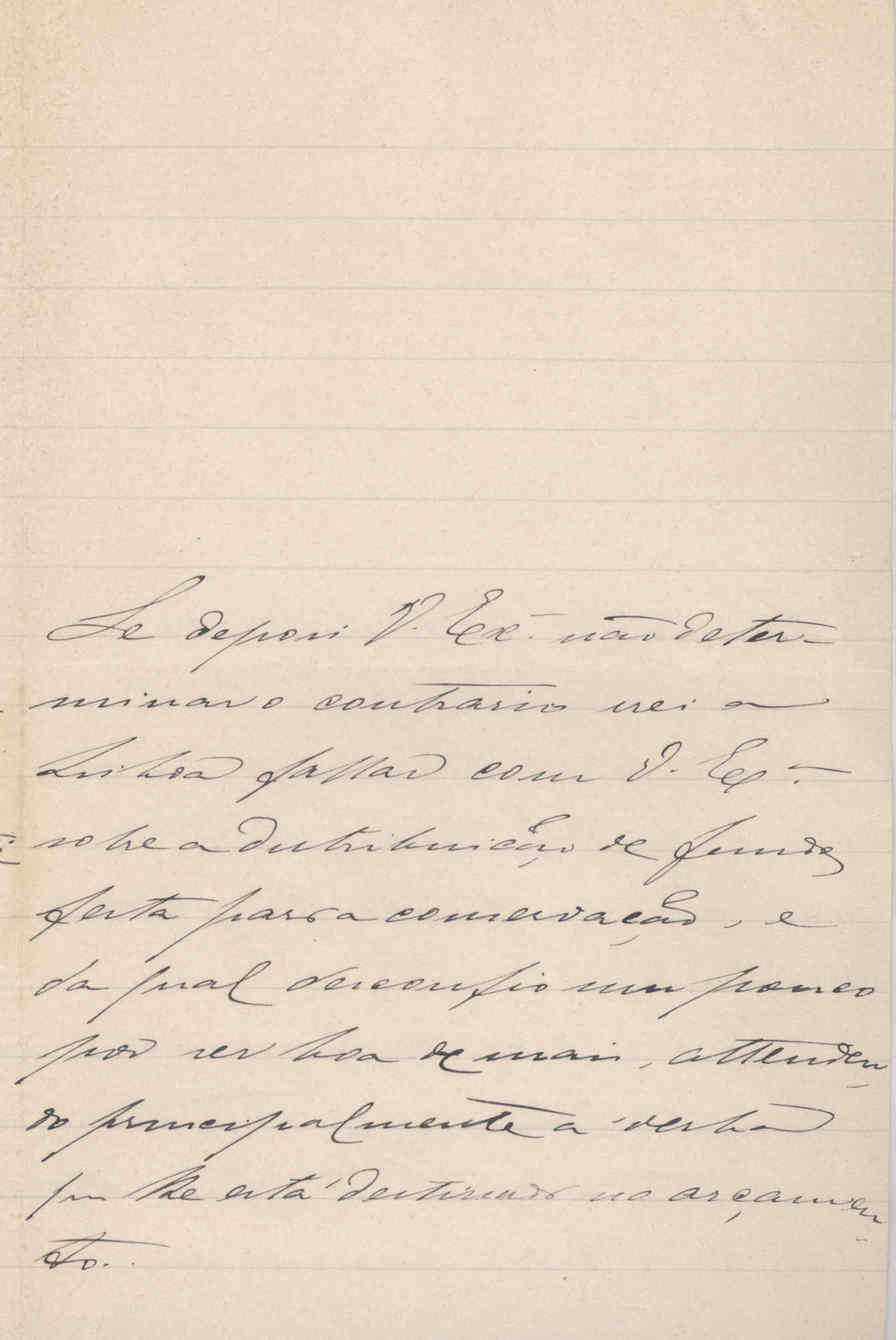 Se depois V. Exª não deter-
minar o contrario irei a
Lisboa fallar com V. Exª
sobre a distribuição de fundos
feita para a conservação, e
da qual desconfio um pouco
por ser boa de mais, attenden-
do principalmente á verba
que lhe está destinada no orçamen-
to.